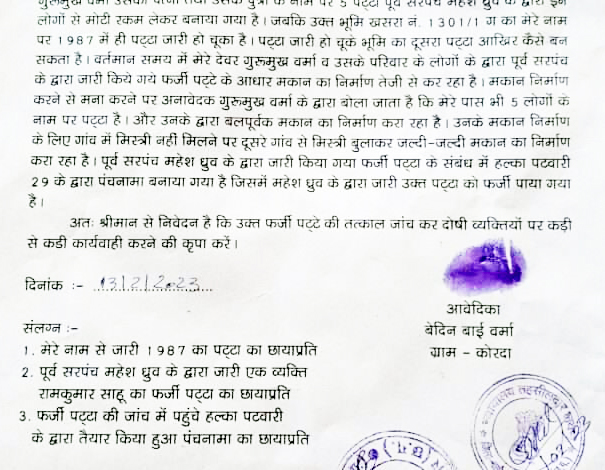 गुरूमुख वर्मा उसकी पत्नी तथा उसके पुत्रों के नाम पर 5 पट्टा पूर्व सरपंच महेश ध्रुव के द्वारा इन
लोगों से मोटी रकम लेकर बनाया गया है। जबकि उक्त भूमि खसरा नं. 1301/1 ग का मेरे नाम
पर 1987 में ही पट्टा जारी हो चूका है। पट्टा जारी हो चूके भूमि का दूसरा पट्टा आखिर कैसे बन
सकता है। वर्तमान समय में मेरे देवर गुरूमुख वर्मा व उसके परिवार के लोगों के द्वारा पूर्व सरपंच
के द्वारा जारी किये गये फर्जी पट्टे के आधार मकान का निर्माण तेजी से कर रहा है। मकान निर्माण
करने से मना करने पर अनावेदक गुरूमुख वर्मा के द्वारा बोला जाता है कि मेरे पास भी 5 लोगों के
नाम पर पट्टा है। और उनके द्वारा बलपूर्वक मकान का निर्माण करा रहा है। उनके मकान निर्माण
के लिए गांव में मिस्त्री नहीं मिलने पर दूसरे गांव से मिस्त्री बुलाकर जल्दी-जल्दी मकान का निर्माण
करा रहा है। पूर्व सरपंच महेश ध्रुव के द्वारा जारी किया गया फर्जी पट्टा के संबंध में हल्का पटवारी
29 के द्वारा पंचनामा बनाया गया है जिसमें महेश ध्रुव के द्वारा जारी उक्त पट्टा को फर्जी पाया गया
है।
अतः श्रीमान से निवेदन है कि उक्त फर्जी पट्टे की तत्काल जांच कर दोषी व्यक्तियों पर कड़ी
से कडी कार्यवाही करने की कृपा करें।
दिनांक :- 13/2/2023
आवेदिका
बेदिन बाई वर्मा
ग्राम - कोरदा
संलग्न :-
1. मेरे नाम से जारी 1987 का पट्टा का छायाप्रति
2. पूर्व सरपंच महेश ध्रुव के द्वारा जारी एक व्यक्ति
रामकुमार साहू का फर्जी पट्टा का छायाप्रति
3. फर्जी पट्टा की जांच में पहुंचे हल्का पटवारी
के द्वारा तैयार किया हुआ पंचनामा का छायाप्रति